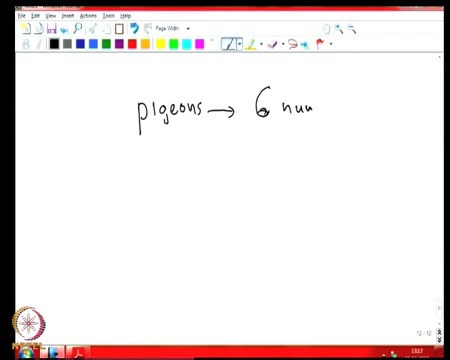 File Edit View Insert Actions Tools Help
Page Width
pigeons → 6 num
12 / 12
NPTEL
13:17